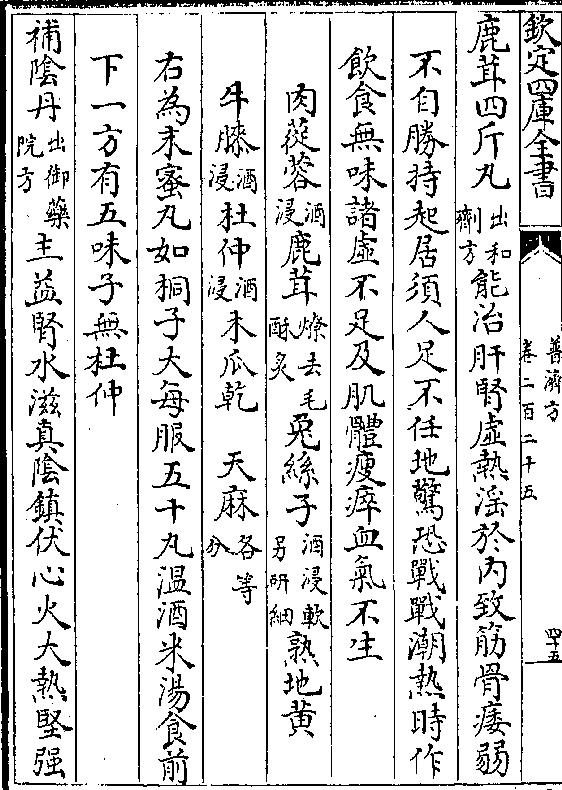 欽定四庫全書
普濟方
卷二百二十五
四十五
鹿茸四斤丸出和劑方能治肝腎虛熱淫於内致筋骨痿弱
不自勝持起居須人足不任地驚恐戰戰潮熱時作
飲食無味諸虛不足及肌體瘦瘁血氣不生
肉蓯蓉酒浸鹿茸燎去毛酥炙兎絲子酒浸軟另研細熟地黄
牛膝酒浸杜仲酒浸木瓜乾 天麻各等分
右為末蜜丸如桐子大每服五十丸温酒米湯食前
下一方有五味子無杜仲
補陰丹出御藥院方主益腎水滋真陰鎮伏心火大熱堅强